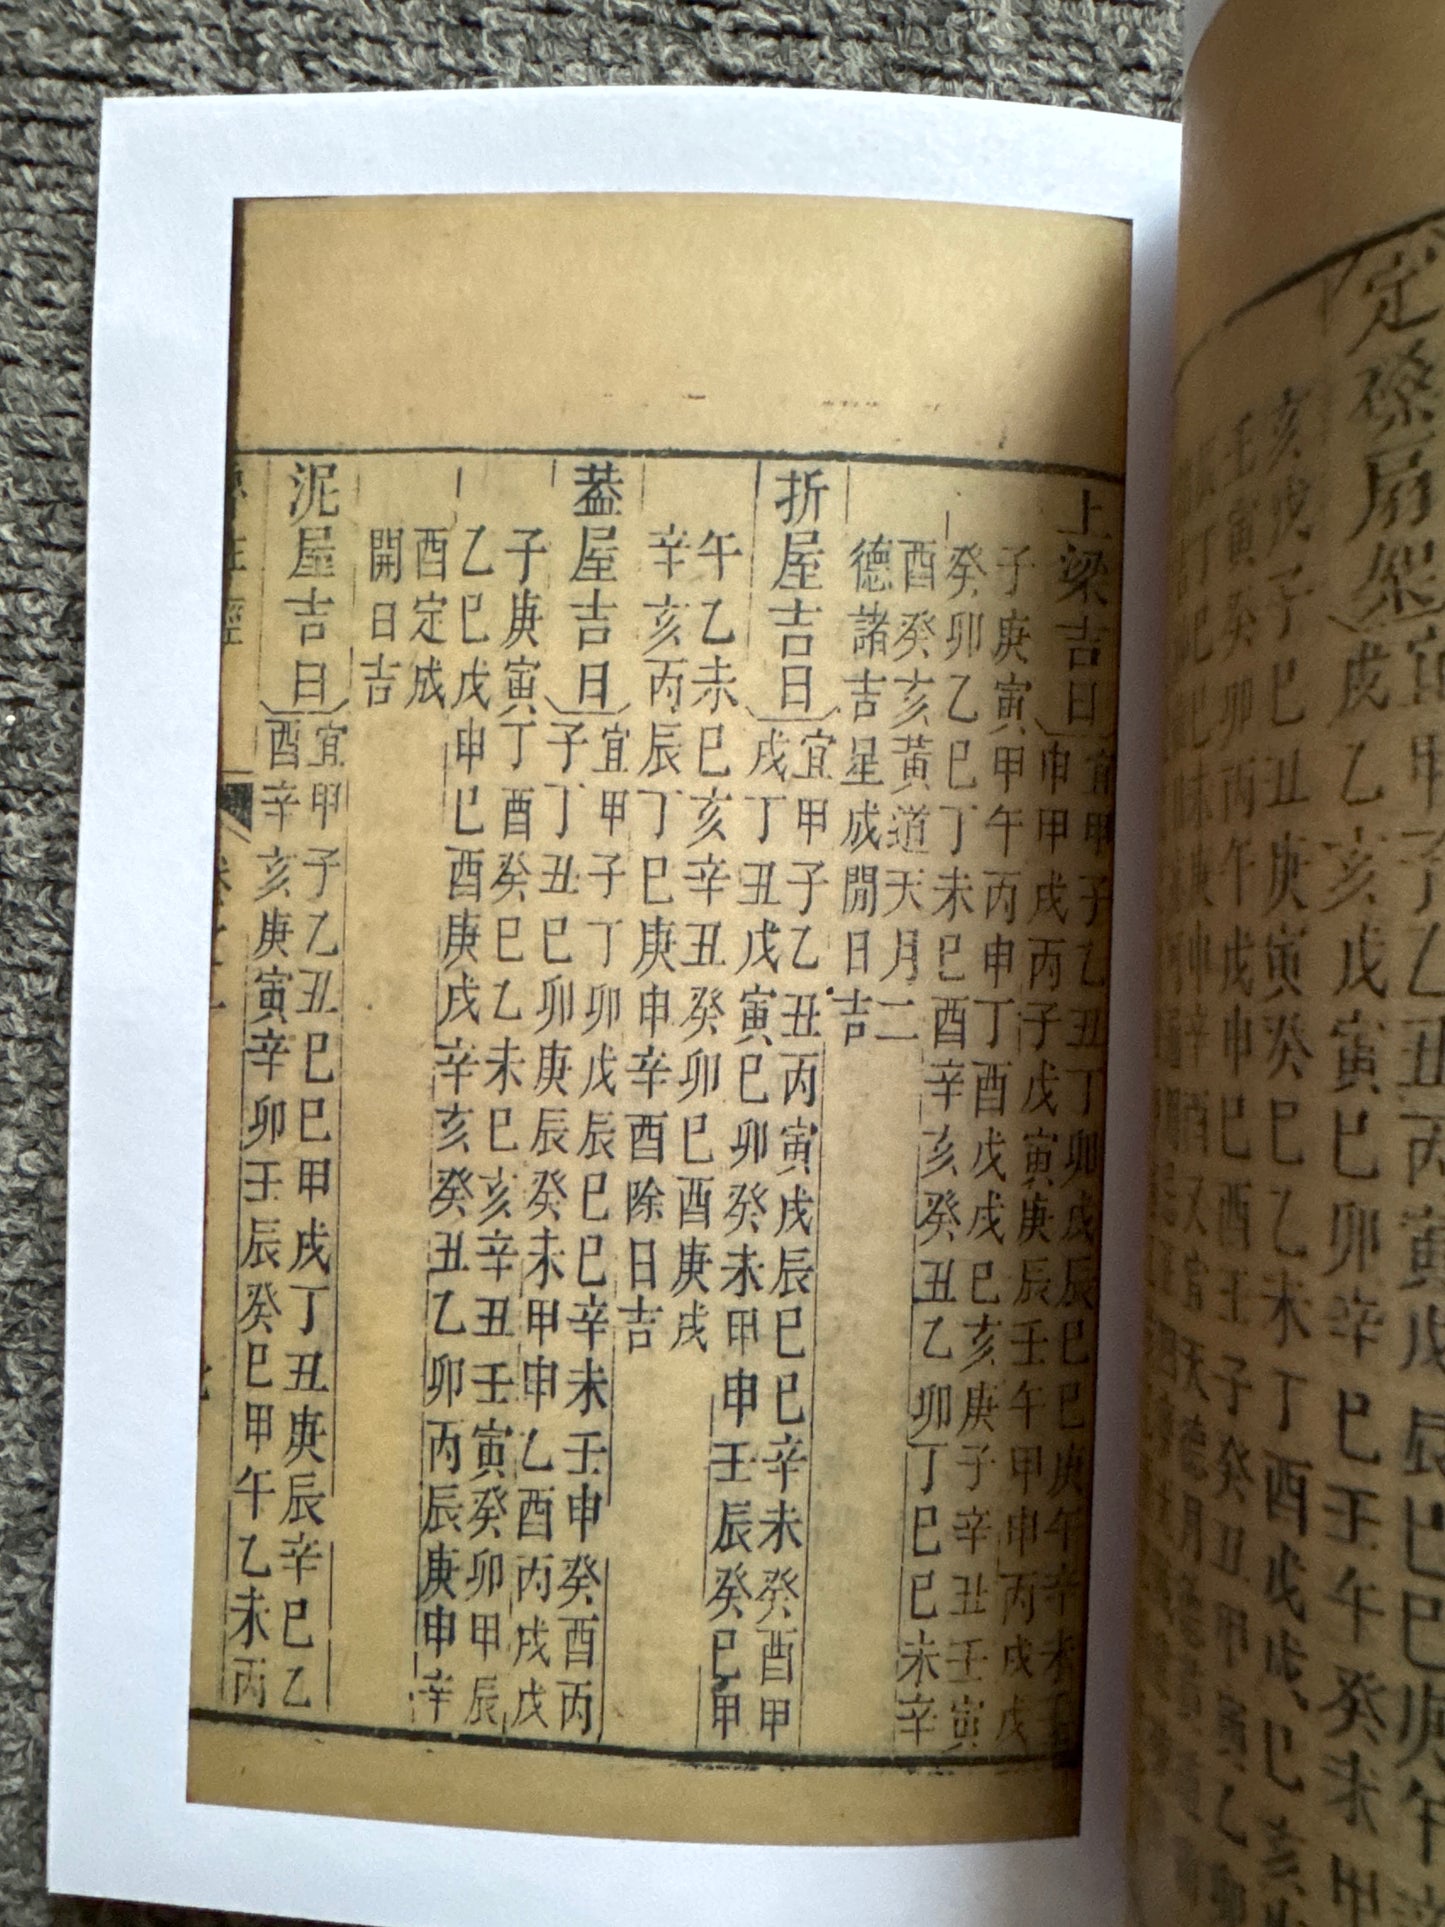 定磉扇架
宜甲子乙丑丙寅戊辰己巳庚午
戌乙亥戊寅己卯辛巳壬午癸未甲
亥戊子己丑庚寅癸巳乙未丁酉戊戌己亥
壬寅癸卯丙午戊申己酉壬子癸丑甲寅乙卯
上梁吉日
宜甲子乙丑丁卯戊辰己巳庚午辛未壬
申甲戌丙子戊寅庚辰壬午甲申丙戌戊
子庚寅甲午丙申丁酉戊戌己亥庚子辛丑壬寅
癸卯乙巳丁未己酉辛亥癸丑乙卯丁巳己未辛
酉癸亥黃道天月二
德諸吉星成開日吉
折屋吉日
宜甲子乙丑丙寅戊辰己巳辛未癸酉甲
戌丁丑戊寅己卯癸未甲申壬辰癸巳甲
午乙未己亥辛丑癸卯己酉庚戌
辛亥丙辰丁巳庚申辛酉除日吉
葢屋吉日
宜甲子丁卯戊辰己巳辛未壬申癸酉丙
子丁丑己卯庚辰癸未甲申乙酉丙戌戊
子庚寅丁酉癸巳乙未己亥辛丑壬寅癸卯甲辰
乙巳戊申己酉庚戌辛亥癸丑乙卯丙辰庚申辛
酉定成
開日吉
泥屋吉日
宜甲子乙丑己巳甲戌丁丑庚辰辛巳乙
酉辛亥庚寅辛卯壬辰癸巳甲午乙未丙